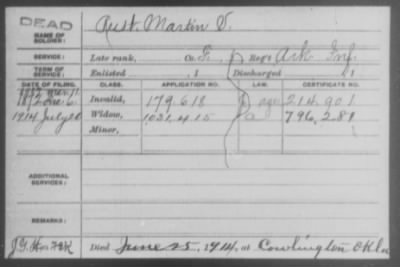 DEAD
NAME OF SOLDIER: Rust, Martin V.
SERVICE: Late rank, Co. F, Reg't Ark Inf.
TERM OF SERVICE: Enlisted , 1 Discharged , 1
DATE OF FILING. CLASS. APPLICATION NO. LAW. CERTIFICATE NO.
Invalid, 179.618 214.901
1914 July 20 Widow, 1031.415 796.281
Minor,
ADDITIONAL SERVICES:
REMARKS:
Died June 25, 1914, at Cowlington Okla